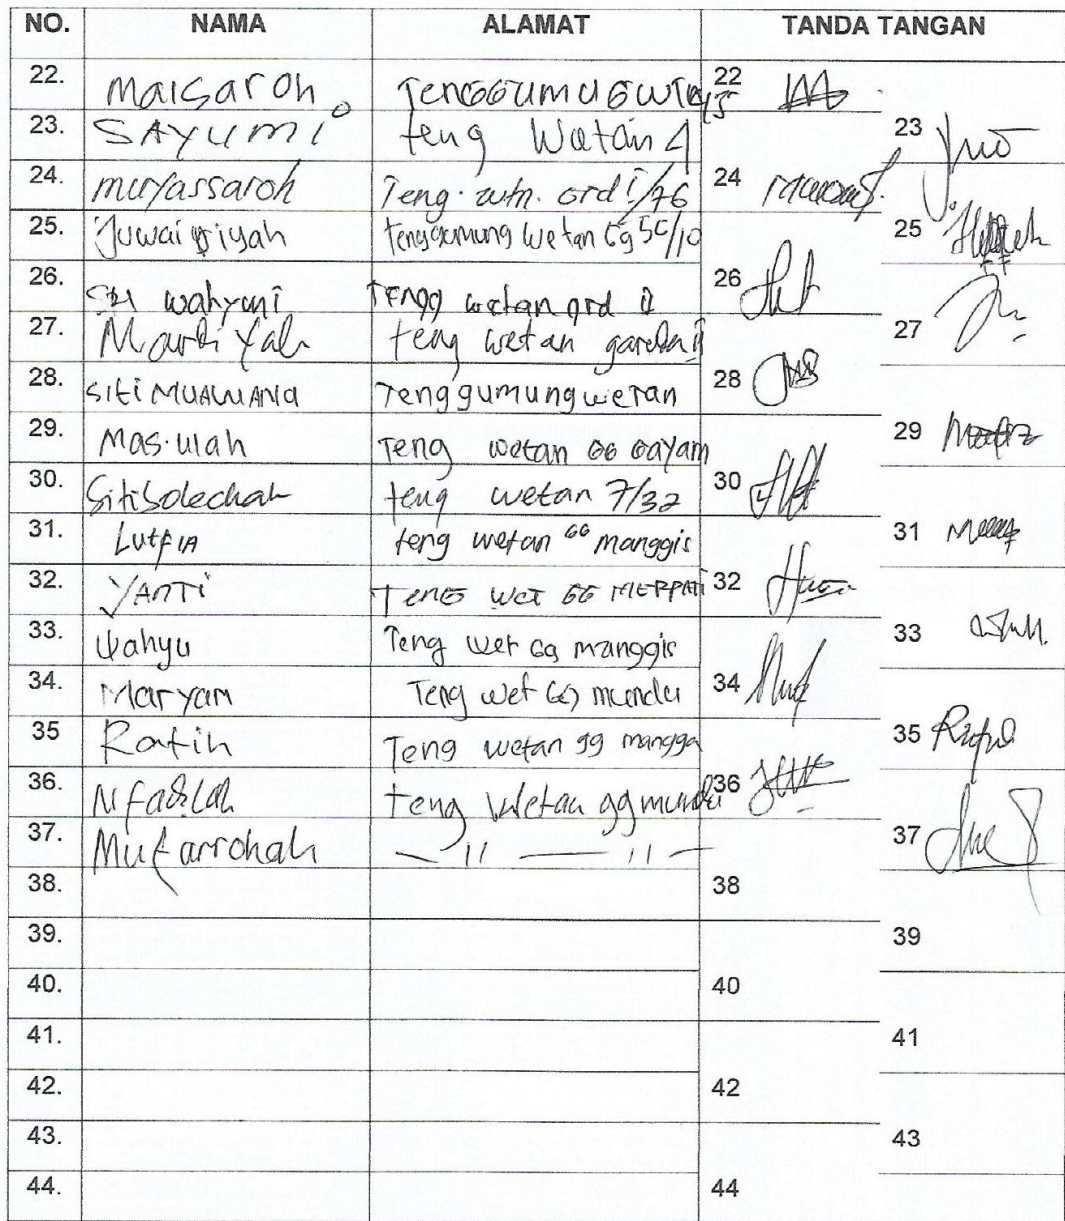 NO. NAMA ALAMAT TANDA TANGAN
22. Maisaroh TENGGUMUG WT 22
23. SAYUMI teng Wetan 4 23
24. muyassaroh Teng. wtn. Grd I/76 24
25. Juwairiyah Tenggumung Wetan Gg 5C/10 25
26. Sri wahyuni Tengg wetan grd 26
27. Mardiyah teng wetan 27
28. SITI MUAWANA Tenggumung wetan 28
29. Mas.ulah Teng wetan GG Gayam 29
30. Siti Solechah teng wetan 7/32 30
31. LUTFIA teng wetan GG manggis 31
32. YANTI TENG WET GG MERPATI 32
33. Wahyu Teng wet Gg manggis 33
34. Maryam Teng wet GG mundu 34
35 Ratih Teng wetan gg mangga 35
36. N fadilah teng Wetan gg mundu 36
37. Mufarrohah — 11 — 11 — 37
38. 38
39. 39
40. 40
41. 41
42. 42
43. 43
44. 44